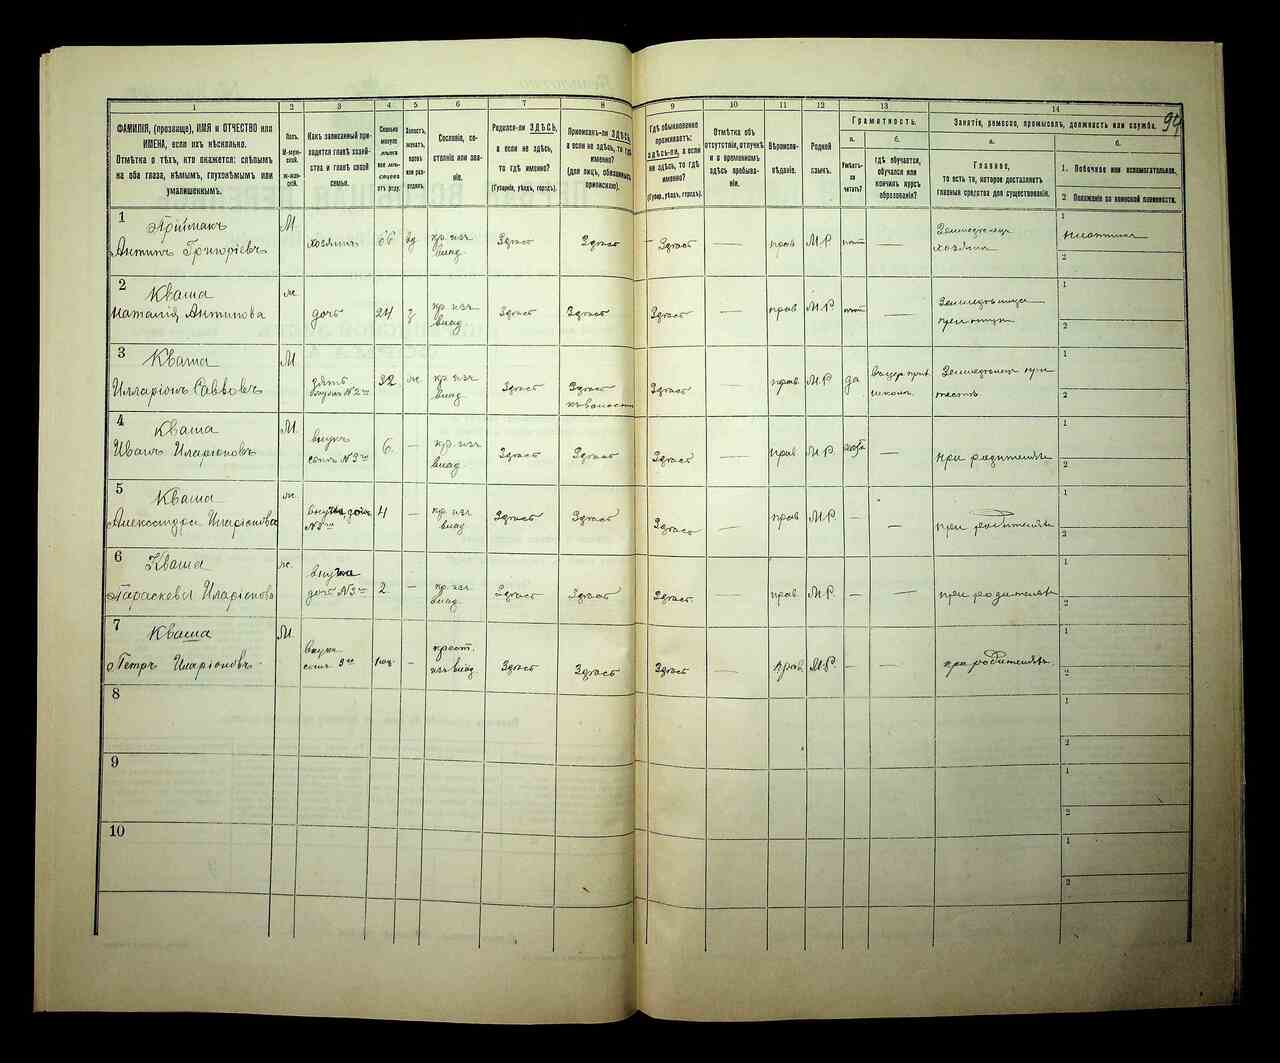 94
1
ФАМИЛІЯ, (прозвище), ИМЯ и ОТЧЕСТВО или
ИМЕНА, если ихъ нѣсколько.
Отмѣтка о тѣхъ, кто окажется: слѣпымъ
на оба глаза, нѣмымъ, глухонѣмымъ или
умалишеннымъ.
2
Полъ.
М-муж-
ской.
ж-жен-
скій.
3
Какъ записанный при-
ходится главѣ хозяй-
ства и главѣ своей
семьи.
4
Сколько
минуло
лѣтъ
или мѣ-
сяцевъ
отъ роду.
5
Холостъ,
женатъ,
вдовъ
или раз-
веденъ.
6
Сословіе, со-
стояніе или зва-
ніе.
7
Родился-ли ЗДѢСЬ,
а если не здѣсь,
то гдѣ именно?
(Губернія, уѣздъ, городъ).
8
Приписанъ-ли ЗДѢСЬ,
а если не здѣсь, то гдѣ
именно?
(для лицъ, обязанныхъ
припискою).
9
Гдѣ обыкновенно
проживаетъ:
здѣсь-ли, а если
не здѣсь, то гдѣ
именно?
(Губер., уѣздъ, городъ).
10
Отмѣтка объ
отсутствіи, отлучкѣ
и о временномъ
здѣсь пребыва-
ніи.
11
Вѣроиспо-
вѣданіе.
12
Родной
языкъ.
13
Грамотность.
а.
Умѣетъ-
ли
читать?
б.
гдѣ обучается,
обучался или
кончилъ курсъ
образованія?
14
Занятіе, ремесло, промыселъ, должность или служба.
а.
Главное,
то есть то, которое доставляетъ
главныя средства для существованія.
б.
1. Побочное или вспомогательное.
2 Положеніе по воинской повинности.
1
Прийманъ
Антипъ Григоріевъ
М
хозяинъ
66
вд
кр. изъ
влад.
Здѣсь
Здѣсь
Здѣсь
—
прав
М.Р.
нѣтъ
Земледѣлецъ
хозяинъ
1
2
2
Кваша
Наталія Антипова
ж.
дочь
24
з
кр. изъ
влад.
Здѣсь
Здѣсь
Здѣсь
—
прав
М.Р
нѣтъ
—
1
2
3
Кваша
Илларіонъ Саввовъ
М
зять
32
ж
кр. изъ
влад.
Здѣсь
Здѣсь
Здѣсь
—
прав.
М.Р
да
Земледѣлецъ при
тестѣ
1
2
4
Кваша
Иванъ Иларіоновъ
М.
внукъ
сынъ №3го
6.
—
кр. изъ
влад.
Здѣсь
Здѣсь
Здѣсь
—
прав
М.Р.
—
при родителяхъ
1
2
5
Кваша
Александра Иларіонова
ж.
внучка дочь
№3го
4
—
кр. изъ
влад
Здѣсь
Здѣсь
Здѣсь
—
прав
М.Р.
—
—
при родителяхъ
1
2
6
Кваша
Параскева Иларіонова
ж.
внучка
дочь №3го
2
—
кр. изъ
влад.
Здѣсь
Здѣсь
Здѣсь.
—
прав.
М.Р.
—
—
при родителяхъ
1
2
7
Кваша
Петръ Иларіоновъ
М.
внукъ
сынъ 3го
—
крест.
изъ влад.
Здѣсь
Здѣсь
Здѣсь
—
прав.
М.Р.
—
—
при родителяхъ.
1
2
8
1
2
9
1
2
10
1
2